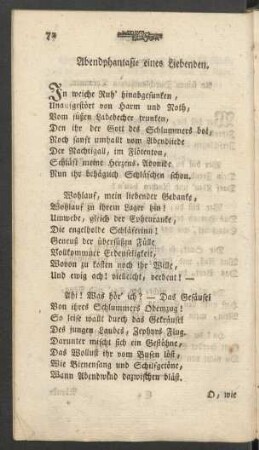 72
Abendphantasie eines Liebenden.
In weiche Ruh' hinabgesunken,
Unaufgestört von Harm und Noth,
Vom süßen Labebecher trunken,
Den ihr der Gott des Schlummers bot,
Noch sanft umhallt vom Abendliede
Der Nachtigall, im Flötenton,
Schläft meine Herzens-Adonide
Nun ihr behäglich Schläfchen schon.
Wohlauf, mein liebender Gedanke,
Wohlauf zu ihrem Lager hin!
Umwebe, gleich der Epheuranke,
Die engelholde Schläferinn!
Genuß der übersüßen Fülle
Vollkommner Erdenseligkeit,
Wovon zu kosten noch ihr Wille,
Und ewig ach! vielleicht, verbeut! —
Ahi! Was hör' ich? — Das Gesäusel
Von ihres Schlummers Odemzug!
So leise wallt durch das Gekräusel
Des jungen Laubes, Zephyrs Flug.
Darunter mischt sich ein Gestöhne,
Das Wollust ihr vom Busen löst,
Wie Bienensang und Schilfgetöne,
Wann Abendwind dazwischen bläst.
O, wie